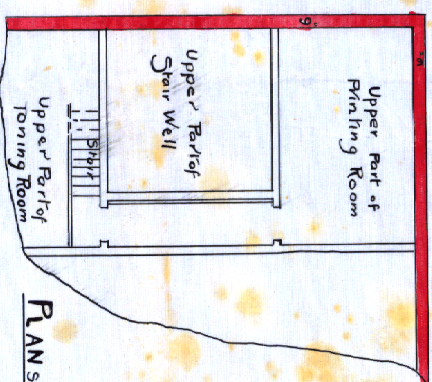 9"
9"
Upper Part of
Printing Room
Upper Part of
Stair Well
Stair
Upper Part of
Toning Room
PLANS